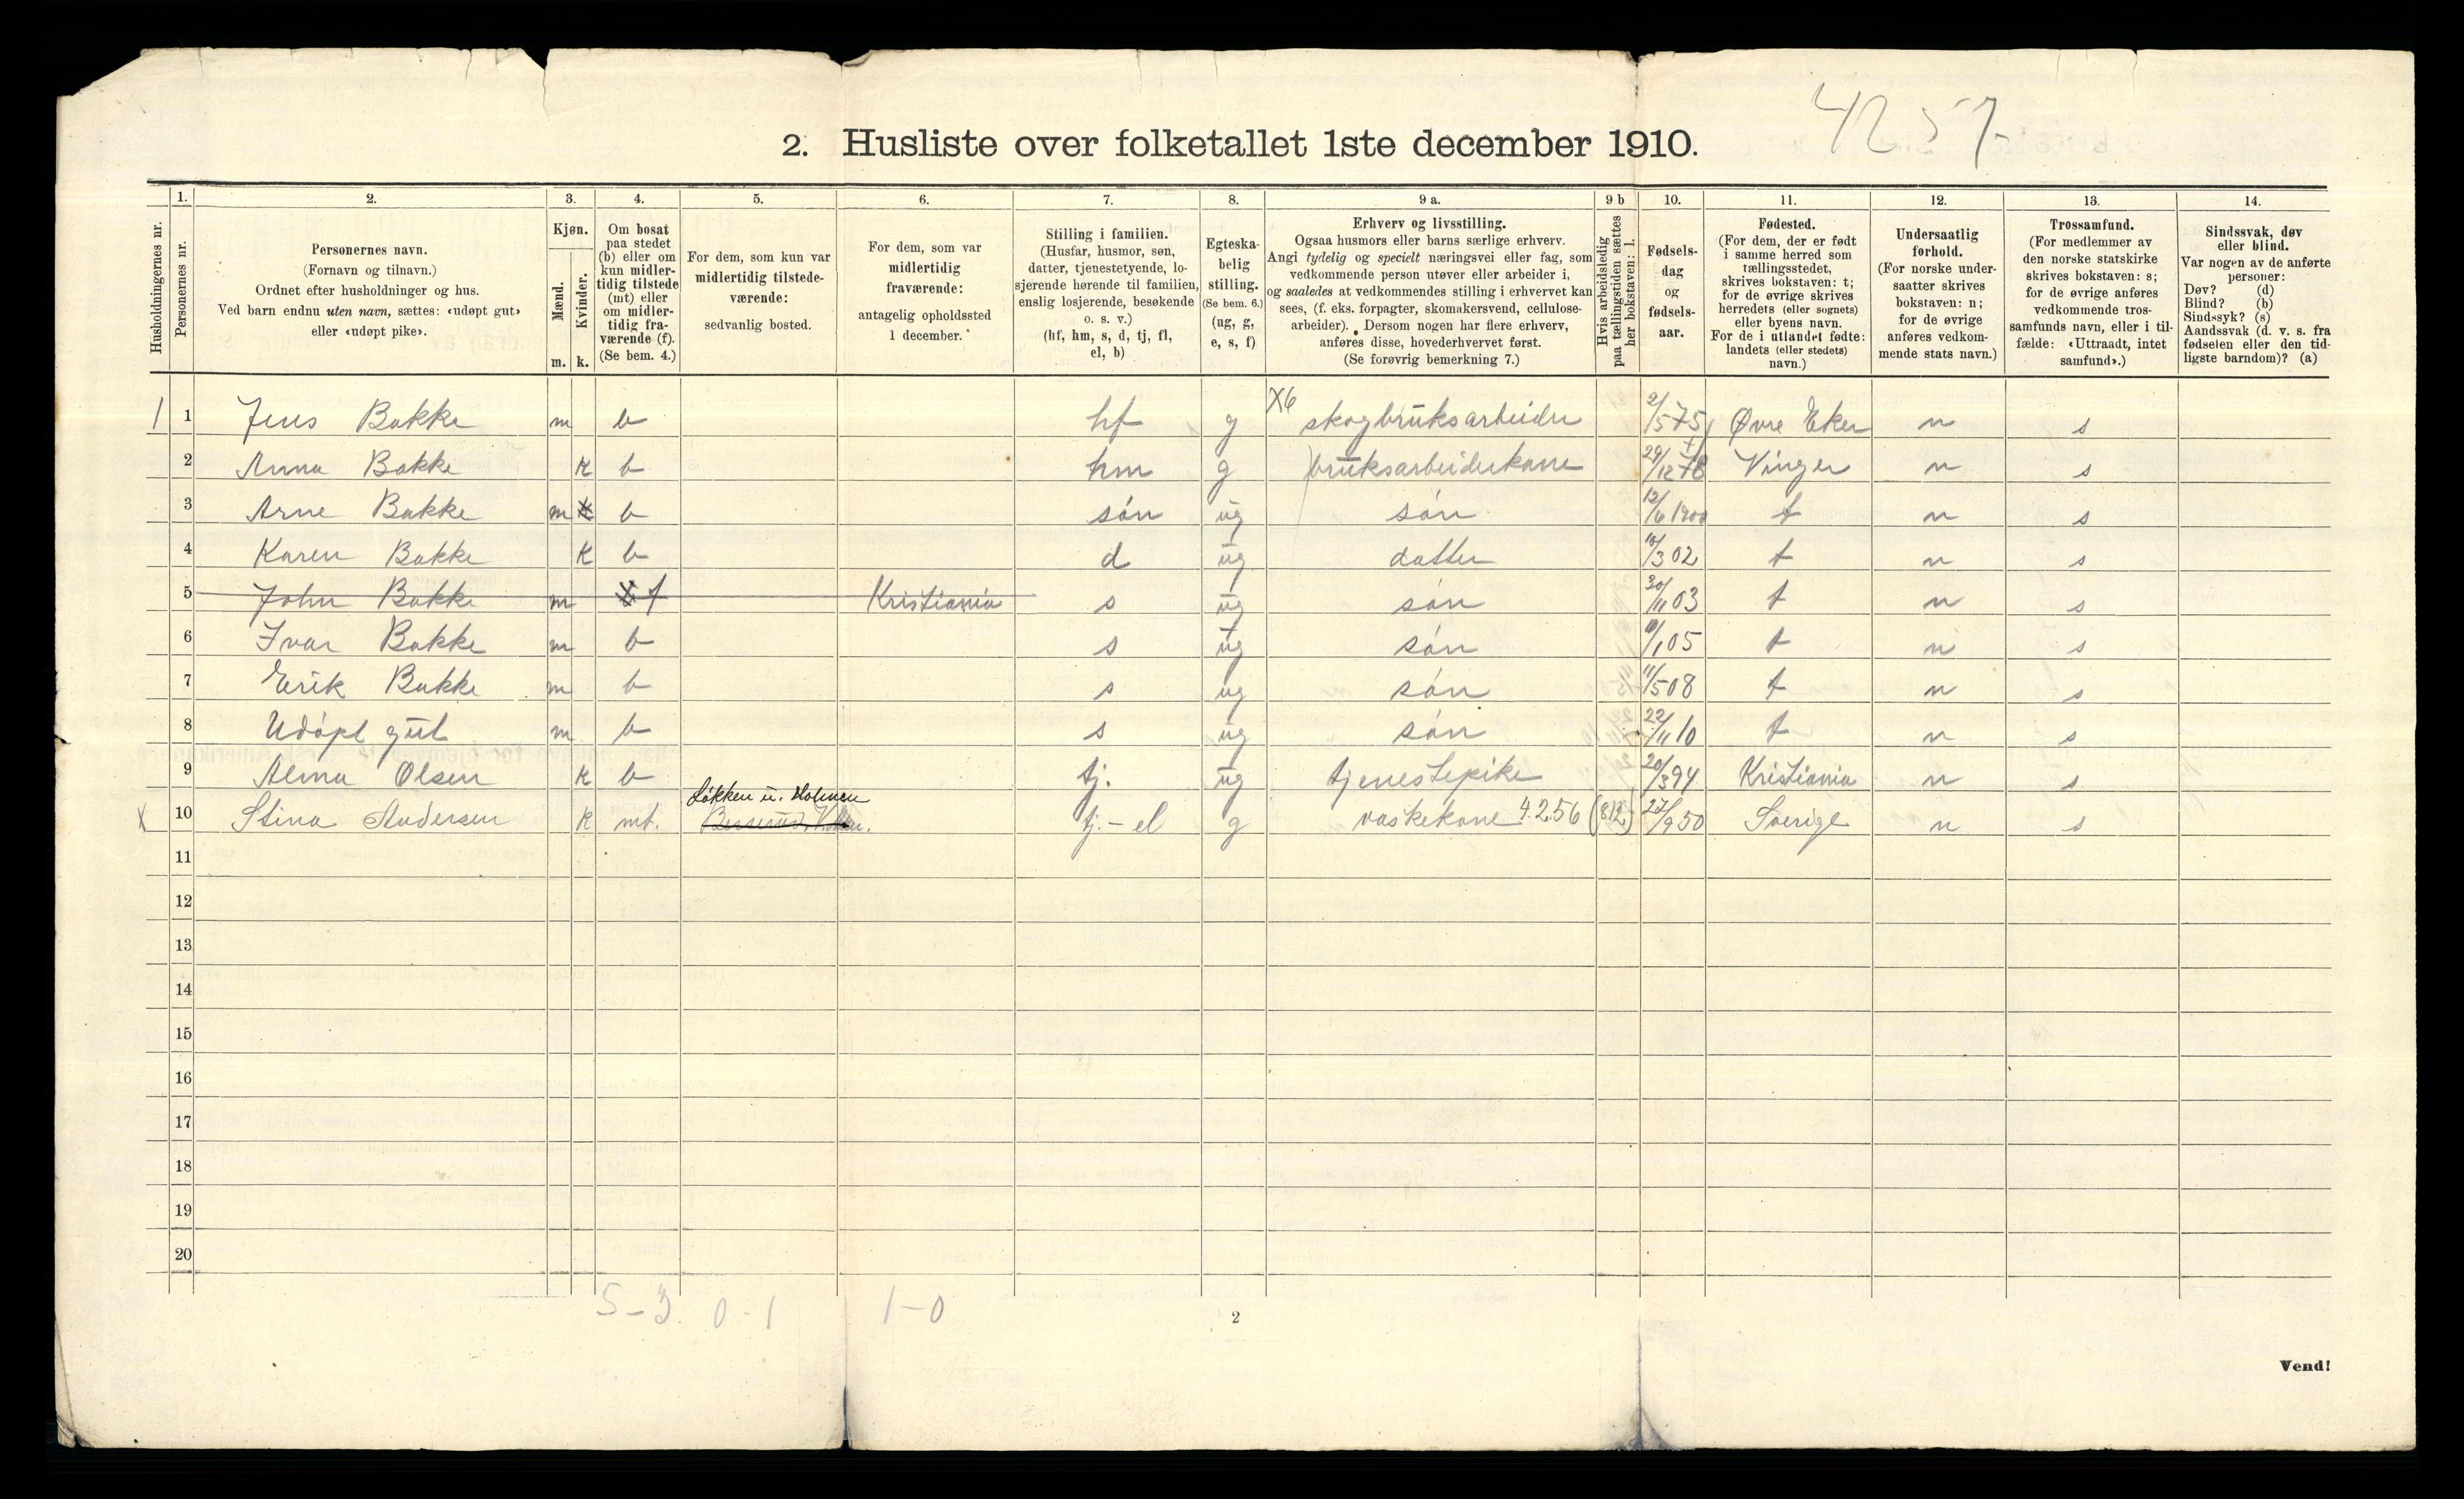 4257
2. Husliste over folketallet 1ste december 1910.
Husholdningernes nr.
1. Personernes nr.
2. Personernes navn. (Fornavn og tilnavn.) Ordnet efter husholdninger og hus. Ved barn endnu uten navn, sættes: «udøpt gut» eller «udøpt pike».
3. Kjøn. Mænd. m. Kvinder. k.
4. Om bosat paa stedet (b) eller om kun midlertidig tilstede (mt) eller om midlertidig fraværende (f). (Se bem. 4.)
5. For dem, som kun var midlertidig tilstedeværende: sedvanlig bosted.
6. For dem, som var midlertidig fraværende: antagelig opholdssted 1 december.
7. Stilling i familien. (Husfar, husmor, søn, datter, tjenestetyende, losjerende hørende til familien, enslig losjerende, besøkende o. s. v.) (hf, hm, s, d, tj, fl, el, b)
8. Egteskabelig stilling. (Se bem. 6.) (ug, g, e, s, f)
9 a. Erhverv og livsstilling. Ogsaa husmors eller barns særlige erhverv. Angi tydelig og specielt næringsvei eller fag, som vedkommende person utøver eller arbeider i, og saaledes at vedkommendes stilling i erhvervet kan sees, (f. eks. forpagter, skomakersvend, cellulosearbeider). Dersom nogen har flere erhverv, anføres disse, hovederhvervet først. (Se forøvrig bemerkning 7.)
9 b Hvis arbeidsledig paa tællingstiden sættes her bokstaven: l.
10. Fødselsdag og fødselsaar.
11. Fødested. (For dem, der er født i samme herred som tællingsstedet, skrives bokstaven: t; for de øvrige skrives herredets (eller sognets) eller byens navn. For de i utlandet fødte: landets (eller stedets) navn.)
12. Undersaatlig forhold. (For norske undersaatter skrives bokstaven: n; for de øvrige anføres vedkommende stats navn.)
13. Trossamfund. (For medlemmer av den norske statskirke skrives bokstaven: s; for de øvrige anføres vedkommende trossamfunds navn, eller i tilfælde: «Uttraadt, intet samfund».)
14. Sindssvak, døv eller blind. Var nogen av de anførte personer: Døv? (d) Blind? (b) Sindssyk? (s) Aandssvak (d. v. s. fra fødselen eller den tidligste barndom)? (a)
X6
1 1 Jens Bakke m b hf g skogbruksarbeider 2/5 75 Øvre Eker n s
2 Anna Bakke k b hm g bruksarbeiderkone 29/12 78 Vinger n s
3 Arne Bakke m k b søn ug søn 12/6 1900 t n s
4 Karen Bakke k b d ug datter 10/3 02 t n s
5 John Bakke m f Kristiania s ug søn 30/11 03 t n s
6 Ivar Bakke m b s ug søn /1 05 t n s
7 Erik Bakke m b s ug søn 11/5 08 t n s
8 Udøpt gut m b s ug søn 22/11 10 t n s
9 Alma Olsen k b tj. ug tjenestepike 20/3 94 Kristiania n s
Løkken u. Holmen
x 10 Stina Andersen k mt. tj. - el g vaskekone 4.2.56 (812) 27/9 50 Sverige n s
11
12
13
14
15
16
17
18
19
20
5-3 0-1 1-0
2
Vend!